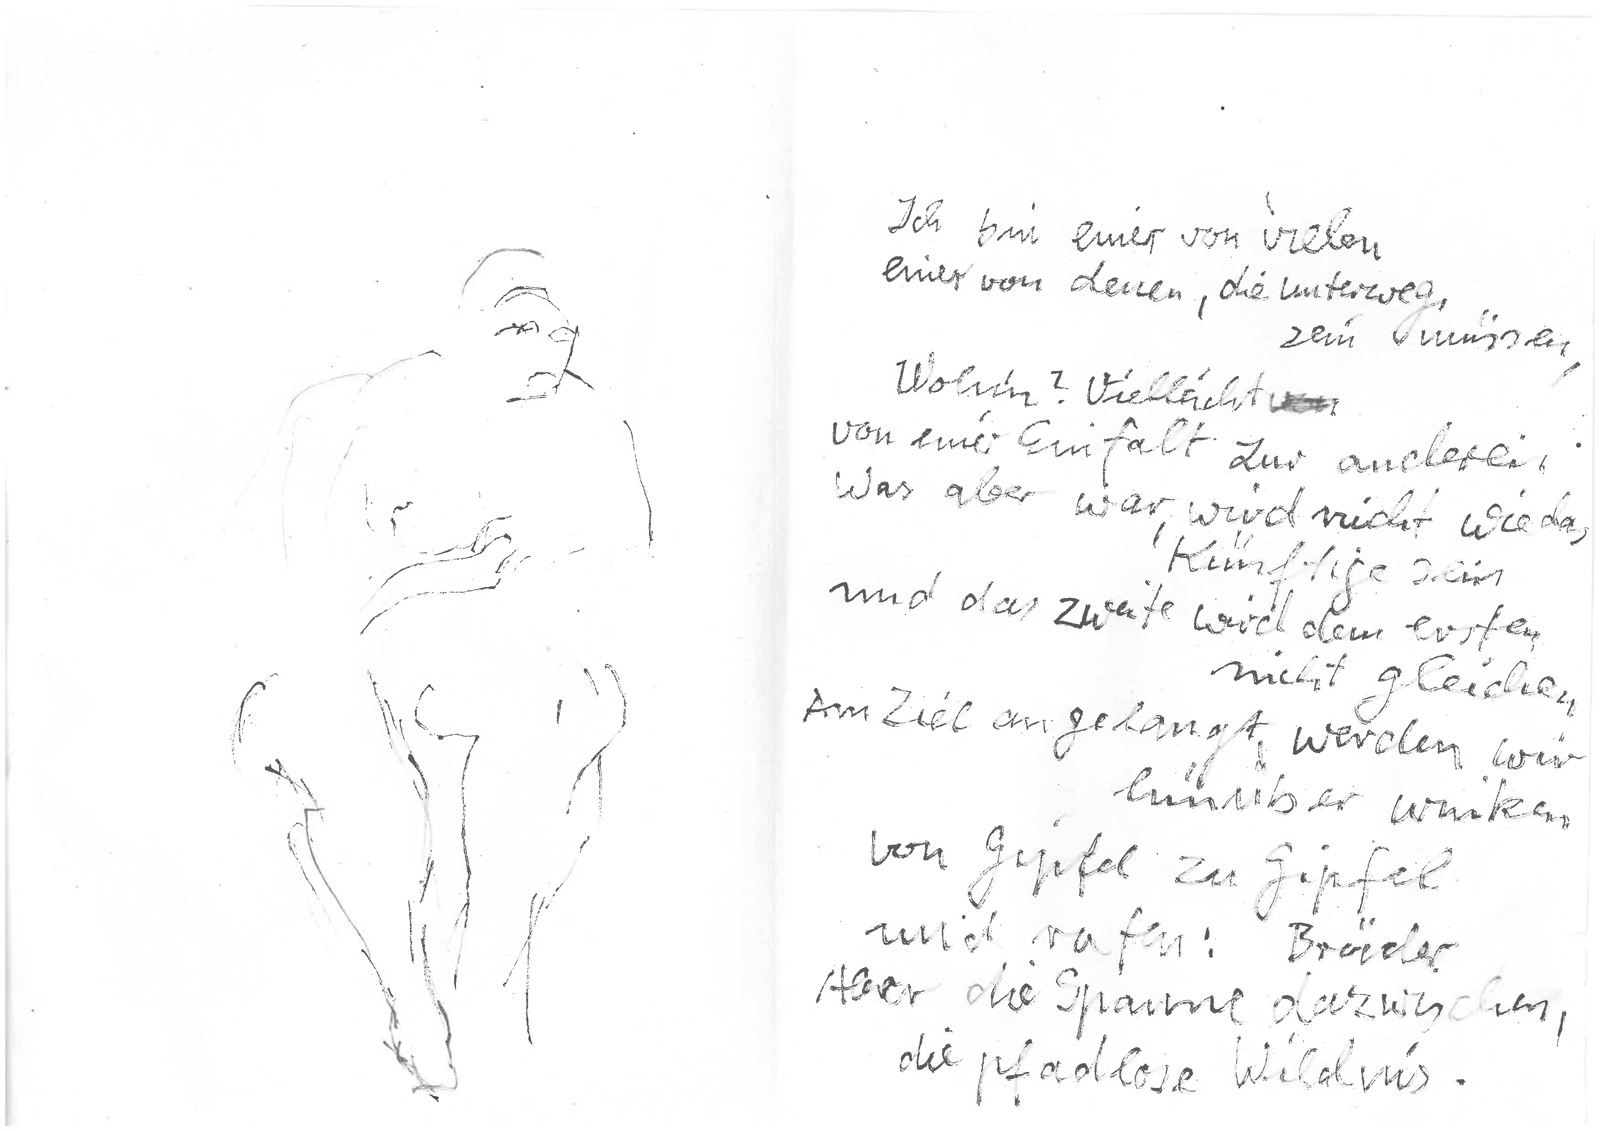 Ich bin einer von vielen
einer von denen, die unterwegs
sein müssen,
Wohin? Vielleicht
von einer Einfalt zur anderen.
Was aber war, wird nicht wie das
Künftige sein
und das zweite wird dem ersten
nicht gleichen
Am Ziel angelangt, werden wir
hinüber winken
von Gipfel zu Gipfel
und rufen: Brüder
Aber die Spanne dazwischen,
die pfadlose Wildnis.